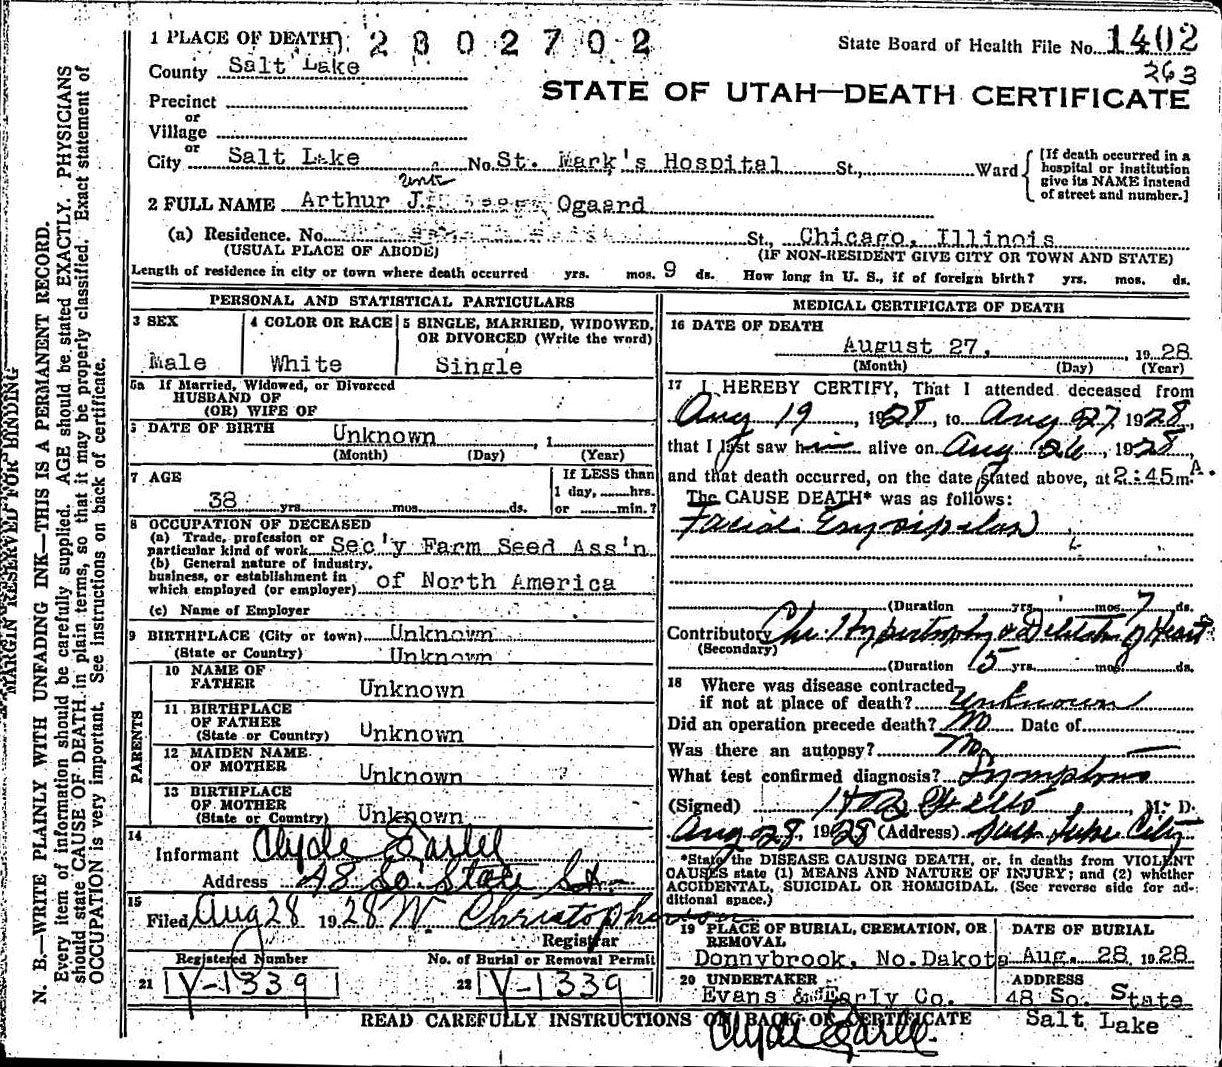 MARGIN RESERVED FOR BINDING
N. B.—WRITE PLAINLY WITH UNFADING INK—THIS IS A PERMANENT RECORD.
Every item of information should be carefully supplied. AGE should be stated EXACTLY. PHYSICIANS
should state CAUSE OF DEATH in plain terms, so that it may be properly classified. Exact statement of
OCCUPATION is very important. See instructions on back of certificate.
1 PLACE OF DEATH 2802702
State Board of Health File No. 1402
263
County Salt Lake
STATE OF UTAH—DEATH CERTIFICATE
Precinct
or
Village
or
City Salt Lake No. St. Mark's Hospital St., Ward
[If death occurred in a hospital or institution give its NAME instead of street and number.]
2 FULL NAME Arthur J. Ogaard
(a) Residence. No. St., Chicago, Illinois
(USUAL PLACE OF ABODE) (IF NON-RESIDENT GIVE CITY OR TOWN AND STATE)
Length of residence in city or town where death occurred yrs. mos. 9 ds. How long in U. S., if of foreign birth? yrs. mos. ds.
PERSONAL AND STATISTICAL PARTICULARS
3 SEX
Male
4 COLOR OR RACE
White
5 SINGLE, MARRIED, WIDOWED,
OR DIVORCED (Write the word)
Single
5a If Married, Widowed, or Divorced
HUSBAND OF
(OR) WIFE OF
6 DATE OF BIRTH Unknown , 1
(Month) (Day) (Year)
7 AGE
38 yrs. mos. ds.
If LESS than
1 day, hrs.
or min.?
8 OCCUPATION OF DECEASED
(a) Trade, profession or
particular kind of work Sec'y Farm Seed Ass'n
(b) General nature of industry,
business, or establishment in
which employed (or employer) of North America
(c) Name of Employer
9 BIRTHPLACE (City or town) Unknown
(State or Country) Unknown
PARENTS
10 NAME OF
FATHER Unknown
11 BIRTHPLACE
OF FATHER
(State or Country) Unknown
12 MAIDEN NAME
OF MOTHER Unknown
13 BIRTHPLACE
OF MOTHER
(State or Country) Unknown
14
Informant Clyde Earll
Address 48 So. State St.
15
Filed Aug 28 1928 W. Christopherson
Registrar
Registered Number
21 V-1339
No. of Burial or Removal Permit
22 V-1339
MEDICAL CERTIFICATE OF DEATH
16 DATE OF DEATH
August 27, 1928
(Month) (Day) (Year)
17 I HEREBY CERTIFY, That I attended deceased from
Aug 19, 1928, to Aug 27, 1928,
that I last saw him alive on Aug 26, 1928,
and that death occurred, on the date stated above, at 2:45 m. A.
The CAUSE DEATH* was as follows:
Facial Erysipelas
(Duration yrs. mos. 7 ds.
Contributory Chr. Hypertrophy & Dilitation of Heart
(Secondary)
(Duration 5 yrs. mos. ds.
18 Where was disease contracted
if not at place of death? unknown
Did an operation precede death? No Date of
Was there an autopsy? No
What test confirmed diagnosis? Symptoms
(Signed) , M. D.
Aug 28, 1928 (Address) Salt Lake City
*State the DISEASE CAUSING DEATH, or, in deaths from VIOLENT
CAUSES state (1) MEANS AND NATURE OF INJURY; and (2) whether
ACCIDENTAL, SUICIDAL OR HOMICIDAL. (See reverse side for ad-
ditional space.)
19 PLACE OF BURIAL, CREMATION, OR
REMOVAL
Donnybrook, No. Dakota
DATE OF BURIAL
Aug. 28 1928
20 UNDERTAKER
Evans & Early Co.
ADDRESS
48 So. State
Salt Lake
READ CAREFULLY INSTRUCTIONS ON BACK OF CERTIFICATE
Clyde Earll